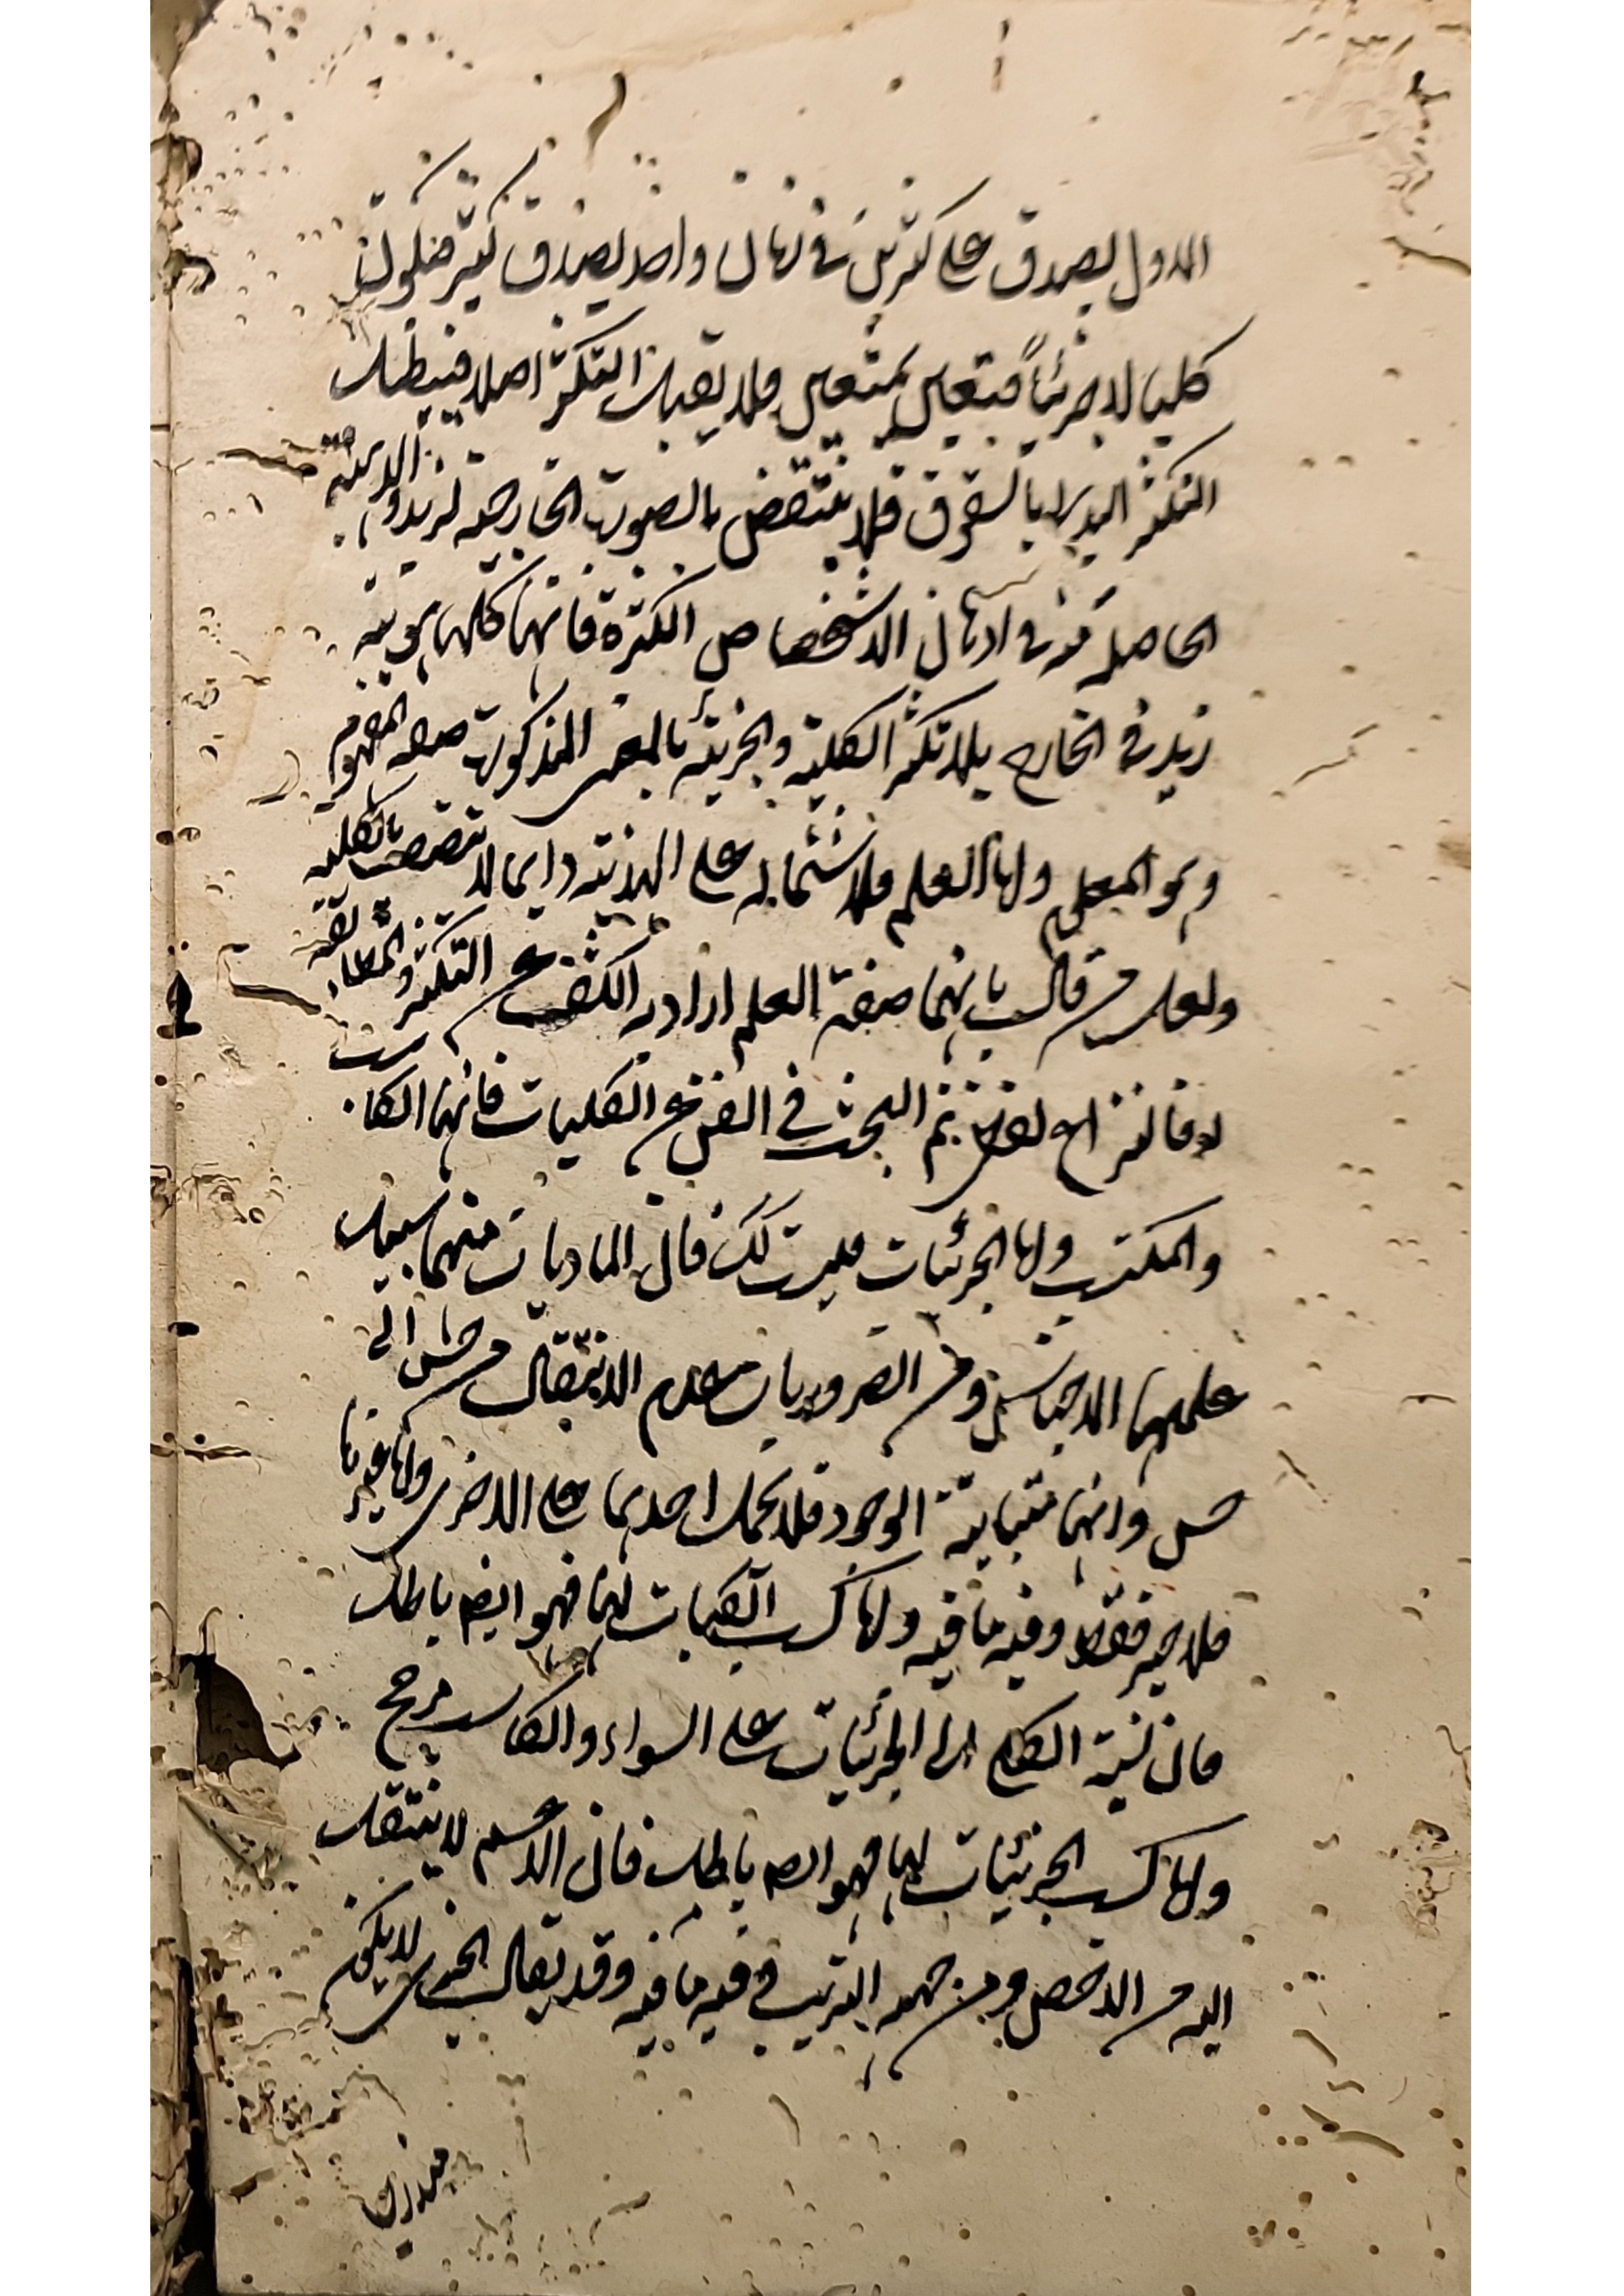 الاول يصدق على كثرين في زمان واحد يصدق كثير فيكون
كليا لا جزئياً فتعين بمتعين فلا تقبل التكثر اصلا فيبطل
التكثر البدلي بالفرق فلا ينتقض بالصورة الخارجية لزيد والذهنية
الحاصلة منه في اذهان الاشخاص الكثرة فانها كلها هوية
زيد في الخارج بلا تكثر الكلية والجزئية بالمعنى المذكور صفة المفهوم
وهو المعلوم واما العلم فلاشتماله على الهذية دايما لا يتصف بالكلية
ولعل من قال بانهما صفة العلم اراد به الكشف عن التكثر والمطابقة
لا فالنزاع لفظي ثم البحث في الفن عن الكليات فانها الكاسب
والمكتسب واما الجزئيات فليست كك فان الماديات منها سبيل
علمها الاحساس ومن الضروريات عدم الانتقال من حس الى
حس وانها متباينة الوجود فلا يحمل احديها على الاخرى واما غيرها
فلا خير فقط وفيه ما فيه واما كسب الكليات لها فهو ايضا باطل
فان نسبة الكلي الى الجزئيات على السواء والكاسب مرجح
واما كسب الجزئيات لها فهو ايضا باطل فان الاعم لا ينتقل
اليه من الاخص ومن جهة الترتيب فيه ما فيه وقد يقال الجزئي لا يكون